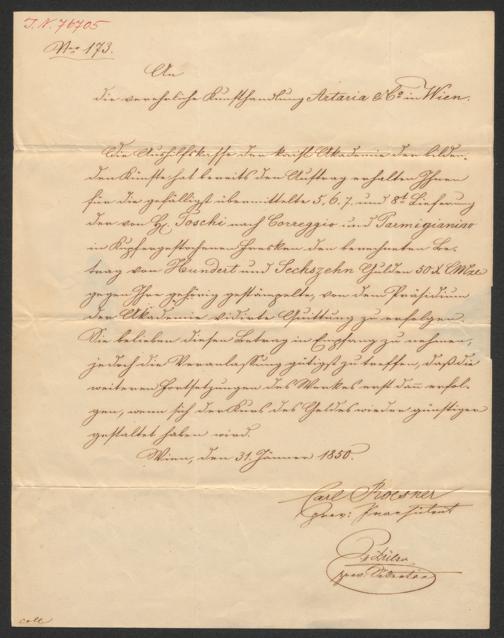 I.N. 76705
Nro 173.
An
die verehrliche Kunsthandlung Artaria & Co in Wien.
Die Aushilfskasse der kaisl. Akademie der bilden-
den Künste hat bereits den Auftrag erhalten Ihnen
für die gefälligst übermittelte 5, 6, 7, und 8te Lieferung
der von H. Toschi nach Correggio und Parmigianino
in Kupfergestochenen Fresken den berechneten Be-
trag von Hundert und Sechszehn Gulden 50 x CMze
gegen Ihre gehörig gestämpelte, von dem Präsidium
der Akademie vidirte Quittung zu erfolgen.
Sie belieben diesen Betrag in Empfang zu nehmen,
jedoch die Veranlassung gütigst zu treffen, daß die
weiteren Fortsetzungen des Werkes erst dañ erfol-
gen, wenn sich der Kurs des Geldes wieder günstiger
gestaltet haben wird.
Wien, den 31. Jänner 1850.
Carl Roesner
prov: Praesident
prov: Secretär